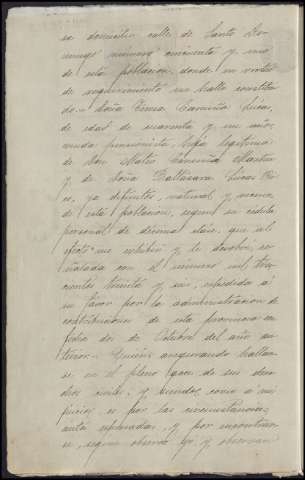 su domicilio calle de Santo Do-
mingo número cincuenta y uno
de esta poblacion, donde en virtud
de requerimiento me hallo constitui-
do = Doña Teresa
de edad de cuarenta y un años,
viuda pensionista, hija legítima
de Don Mateo Martin
y de Doña Baltasara
ya difuntos, natural y vecina
de esta poblacion, segun su cédula
personal de décima clase, que al
efecto me exhibió y le devolví, se-
ñalada con el número mil tres-
cientos treinta y seis, expedida á
su favor por la administracion de
contribuciones de esta provincia en
fecha dos de Octubre del año an-
terior = Quien asegurando hallar-
se en el pleno goce de sus dere-
chos civiles, y siendo, como á mi
juicio, es por las circunstancias
y por encontrar-
se, segun observo yo y observan